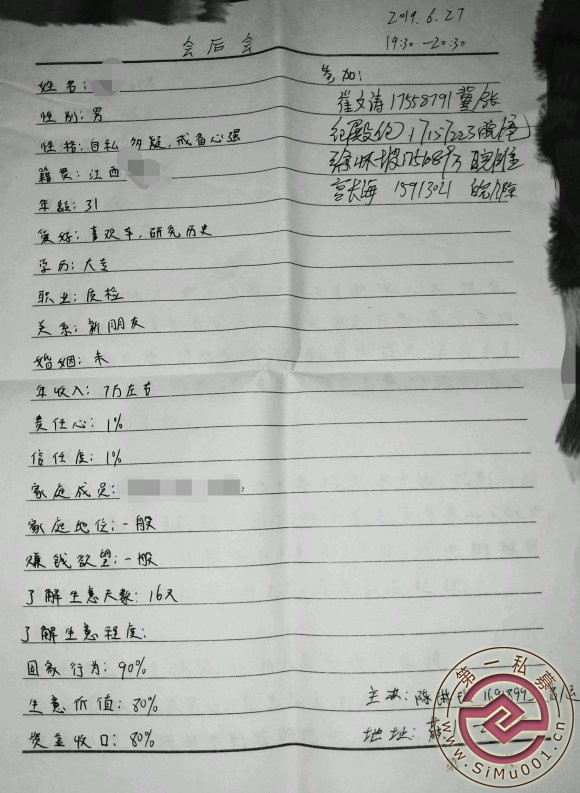 2019.6.27
会后会
19:30—20:30
参加:
姓名:
性别:男
崔文涛17558791冀
性格:自私 多疑,戒备心强
籍贯:江西
年龄:31
宫长海 15913021 皖
爱好:喜欢车,研究历史
学历:大专
职业:质检
关系:新朋友
婚姻:未
年收入:7万左右
责任心:1%
信任度:1%
家庭成员:
家庭地位:一般
赚钱欲望:一般
了解生意天数:16天
了解生意程度:
国家行为:90%
生意价值:80%
主决:陈
资金收口:80%
地址:
第一私募
www.SiMu001.cn